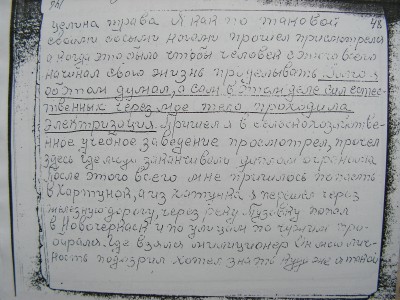 целина трава Я как по таковой 48
своими босыми ногами прошел присмотрелся
а когда это было чтобы человек с этого всего
начинал свою жизнь проделывать Много я
об этом думал, а сам в этом деле сил естес-
твенных через мое тело проходила
электризация. Пришел я в сельскохозяйстве-
нное учебное заведение просмотрел, прочел
здесь где люди заканчивали учатся агронома
После этого всего мне пришлось попасть
в Хартунок, а из хатунка я перешел через
железную дорогу, через реку Тузловку попал
в Новочеркасск, и по улицам по чужим при-
бирался. Где взялся милиционер он мою лич-
ность подозрил хотел знать куда же я такой